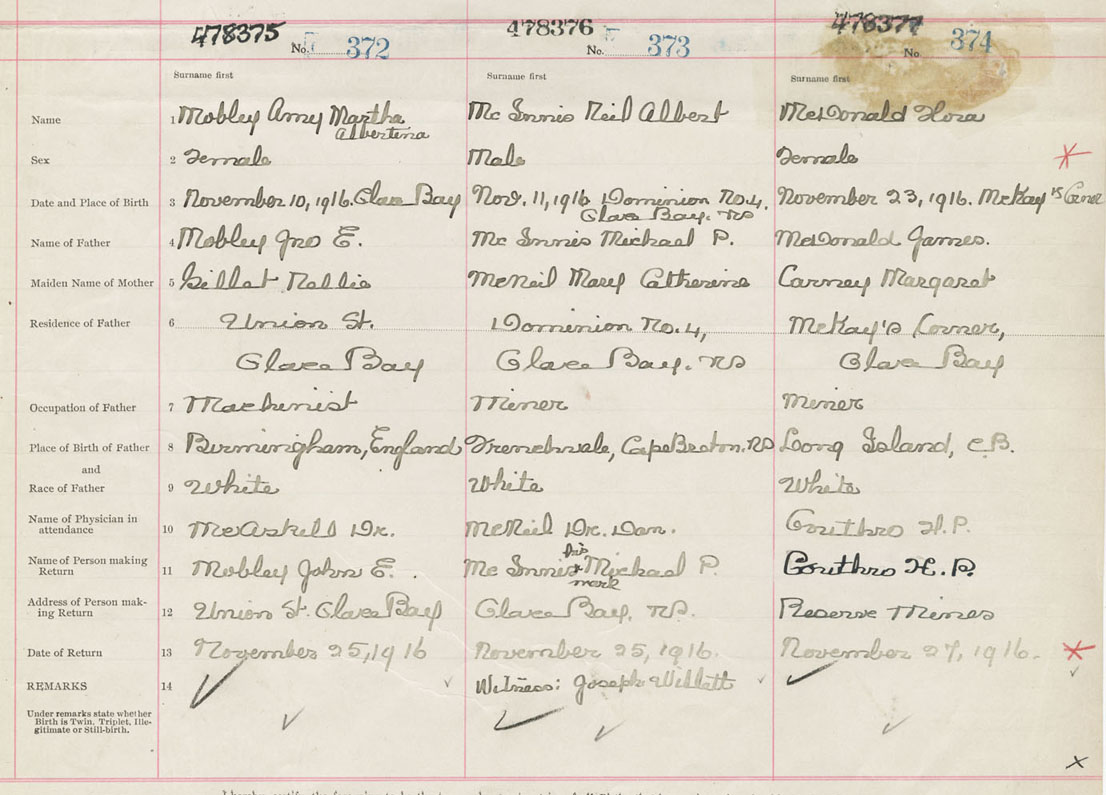 478375 478376 478377
No. 372 No. 373 No. 374
Surname first Surname first Surname first
Name 1 Mobley Amy Martha Mc Innis Neil Albert McDonald Flora
Albertina
Sex 2 Female Male Female
Date and Place of Birth 3 November 10, 1916. Glace Bay Nov. 11, 1916 Dominion No. 4, November 23, 1916. McKay's Corner
Glace Bay. NS
Name of Father 4 Mobley Jno E. Mc Innis Michael P. McDonald James.
Maiden Name of Mother 5 Gillat Nellie McNeil Mary Catherine Carney Margaret
Residence of Father 6 Union St. Dominion No. 4, McKay's Corner,
Glace Bay Glace Bay. NS Glace Bay
Occupation of Father 7 Machinist Miner Miner
Place of Birth of Father 8 Birmingham, England Frenchvale, Cape Breton. NS Long Island, C.B.
and
Race of Father 9 White White White
Name of Physician in
attendance 10 McAskill Dr. McNeil Dr. Dan. Gouthro H. P.
his
Name of Person making
Return 11 Mobley John E. Mc Innis x Michael P. Gouthro H. P.
mark
Address of Person mak-
ing Return 12 Union St. Glace Bay Glace Bay, NS. Reserve Mines
Date of Return 13 November 25, 1916 November 25, 1916. November 27, 1916.
REMARKS 14 Witness: Joseph Willett
Under remarks state whether
Birth is Twin, Triplet, Ille-
gitimate or Still-birth.
x